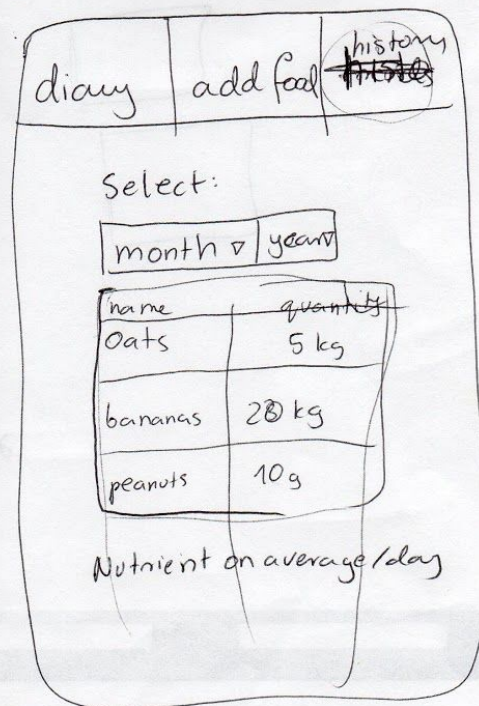 diary add food history
Select:
month year
name quantity
Oats 5 kg
bananas 20 kg
peanuts 10g
Nutrient on average/day